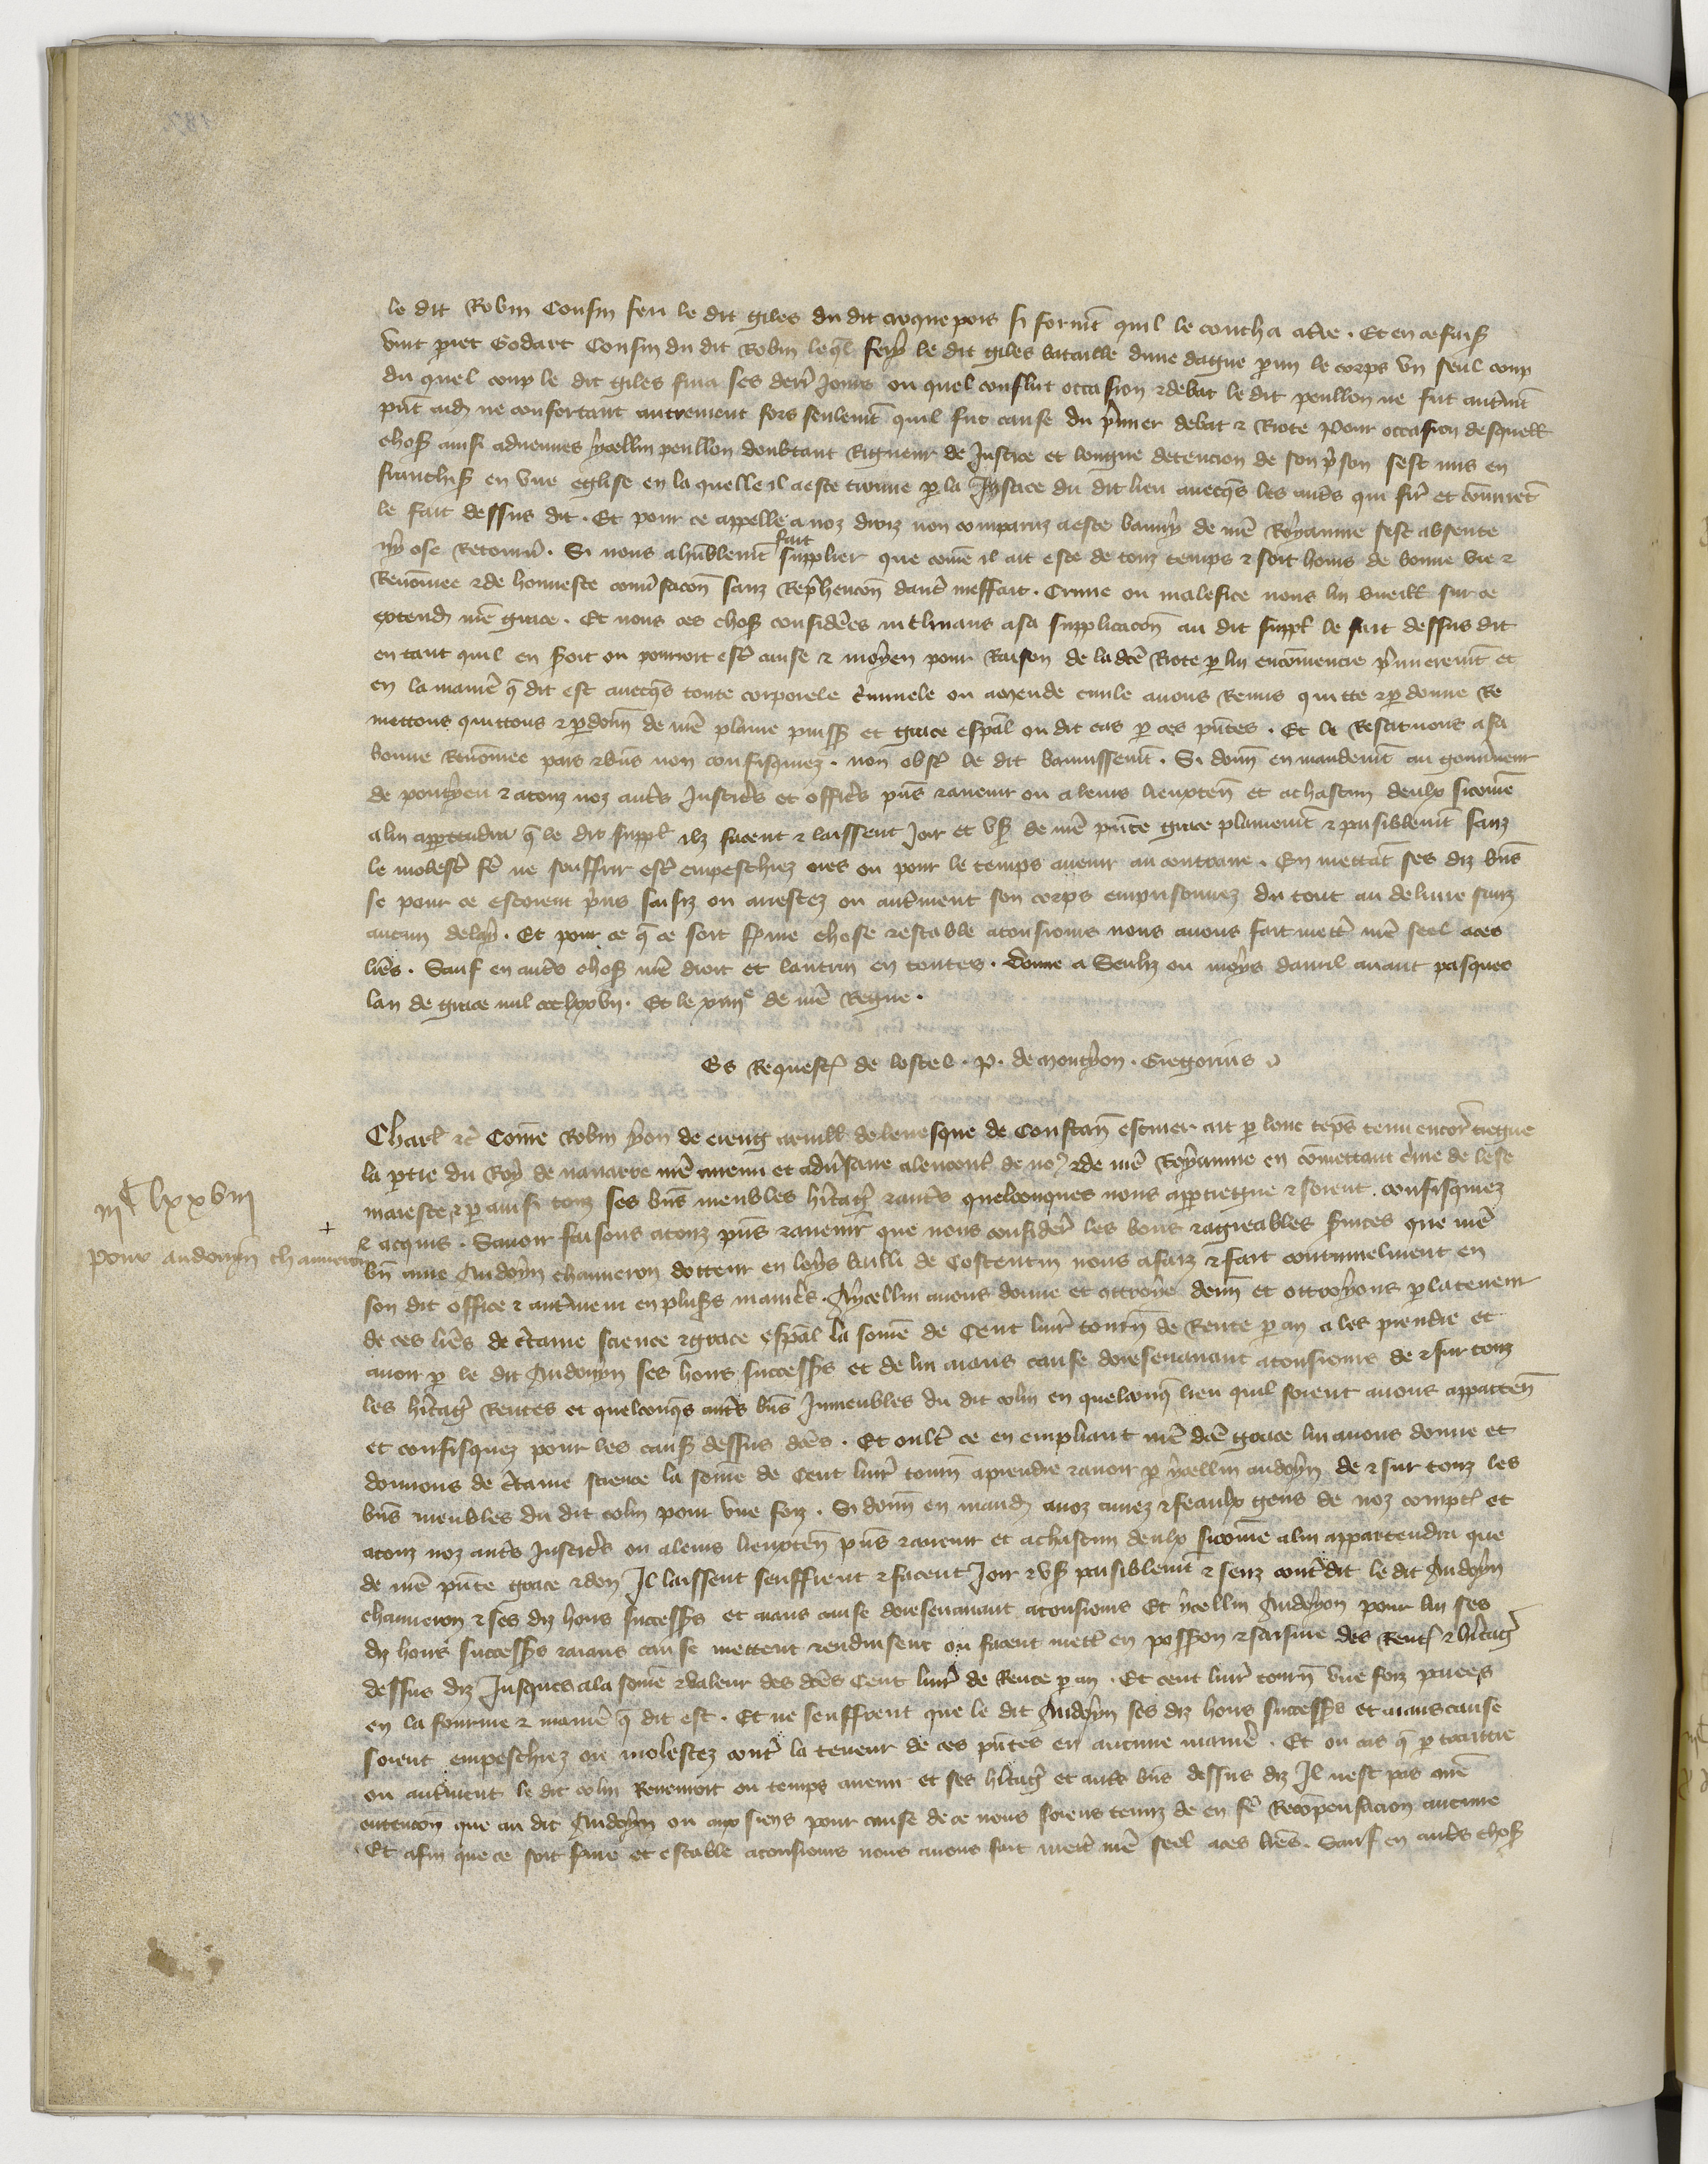 le dit Robin Cousin feri le dit giles du dit croquepois si formt quil le coucha a tre. Et en ce fais
vint piet Godart Cousin du dit Robin leql fery le dit giles bataille dune dague pmi le corps vn seul coup
du quel coup le dit giles fina ses derr jours ou quel conflict occasion & debat le dit peullon ne fut autmt
pnt aid ne confortant autrement fors seulemt quil fut cause du pmier debat & Riote Pour occasion desquell
choss ainsi aduenues ycellui peullon doubtant Rigueur de Justice et longue detencion de son pson sest mis en
franchise en vne eglise en la quelle il a este trouue p la Justice du dit lieu auecqs les auts qui fir et comiret
le fait dessus dit. Et pour ce appelle a noz droiz non comparuz a este banny de nre Royaume sest absente
ny ose Retourn. Si nous a humblemt fait supplier que come il ait este de touz temps & soit homs de bonne vie &
Renomee & de honneste conusacon sanz Rephencon daut meffait. Crime ou malefice nous lui vueill sur ce
extend nre grace. Et nous ces choss considees inclinans a sa supplicacon au dit suppl le fait dessus dit
en tant quil en soit ou pourroit est cause & moyen pour Raison de la dce Riote p lui encomencie pmieremt et
en la manie q dit est auecqs toute corporele cminele ou amende ciuile auons Remis quitte & pdonne Re
mettons quittons & pdonn de nre plaine puiss et grace espal ou dit cas p ces pntes. Et le Restituons a sa
bonne Renomee pais & bns non confisquiez. non obst le dit bannissemt. Si donn en mandemt au gouuneur
de pontyeu & a touz noz auts Justics et offics pns & auenir ou a leurs lieuxten et a chascun deulx sicome
a lui apptendra q le dit suppl ilz facent & laissent Joir et vs de nre pnte grace plainemt & paisiblemt sanz
le molest fe ne souffrir est empeschiez ores ou pour le temps auenir au contraire. En mettat ses diz bns
se pour ce estoient pns saisiz ou arrestez ou autment son corps emprisonnez du tout au deliure sanz
aucun delay. Et pour ce q ce soit fme chose & estable a tousiours nous auons fait mett nre seel a ces
lres. Sauf en auts choss nre droit et lautrui en toutes. Donne a Senliz ou moys dauril auant pasques
lan de grace mil ccclxxvii. Et le xiiiie de nre Regne.
Es Request de lostel. P. de montyon. Gregorius
Charl &c Come Robin yon de cieng de leuesque de Constan escuier ait p lonc teps tenu encor tiegne
la ptie du Roy de nauarre nre ennemi et adusaire alencont de no9 & de nre Royaume en comettant cime de lese
maieste & p ainsi touz ses bns meubles hitag & auts quelconques nous apptiegne & soient confisquiez
& acquis. Sauoir faisons a touz pns & auenir que nous consider les bons & agreables suices que nre
bn ame Audoyn chauueron docteur en loys bailli de Costentin nous a faiz & fait continuelment en
son dit office & autment en plus manies. A ycellui auons donne et ottroye donn et ottroyons p la teneur
de ces lres de ctaine science & grace espal la some de Cent liur tourn de Rente p an a les prendre et
auoir p le dit Audoyn ses hoirs successs et de lui aians cause doresenauant a tousiours de & sur touz
les hitag Rentes et quelconqs auts bns Inmeubles du dit colin en quelconq lieu quil soient auons apparten
et confisquez pour les causs dessus dces. Et oult ce en empliant nre dce grace lui auons donne et
donnons de ctaine science la some de Cent liur tourn a prendre & auoir p ycellui audoyn de & sur touz les
bns meubles du dit colin pour vne foiz. Si donn en mand a noz amez & feaulx gens de noz compt et
a touz noz auts Justics ou a leurs lieuxten pns & auenir et a chascun deulx sicome a lui appartendra que
de nre pnte grace & don Il laissent seuffrent & facent Joir & vs paisiblemt & senz contdit le dit Audoyn
chauueron & ses diz hoirs successs et aians cause doresenauant a tousiours Et ycellui Audoyn pour lui ses
diz hoirs successs & aians cause mettent & enduisent ou facent mett en possson & saisine des Rent & hitag
dessus diz Jusques a la some & valeur des dces Cent liur de Rente p an. Et cent liur tourn vne foiz paiees
en la fourme & manie q dit est. Et ne seuffrent que le dit Audoyn ses diz hoirs successs et aians cause
soient empeschiez ou molestez cont la teneur de ces pntes en aucune manie. Et ou cas q p traictie
ou autment le dit colin Reuenroit ou temps auenir et ses hitag et auts bns dessus diz Il nest pas nre
entencon que au dit Audoyn ou aux siens pour cause de ce nous soiens tenuz de en fe Recompensacion aucune
Et afin que ce soit fme et estable a tousiours nous auons fait mett nre seel a ces lres. Sauf en auts choss
iiiC lxxviii
pour audouyn chauueron